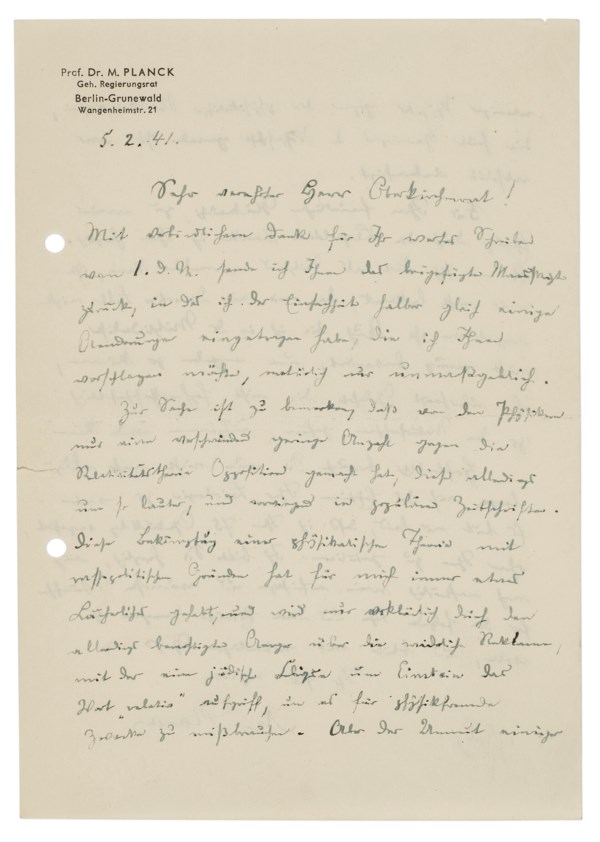 Prof. Dr. M. PLANCK
Geh. Regierungsrat
Berlin-Grunewald
Wangenheimstr. 21
5. 2. 41.
Sehr verehrter Herr Oberkirchenrat!
Mit verbindlichem Dank für Ihr wertes Schreiben
vom 1. d. M. sende ich Ihnen das beigefügte Manuskript
zurück, in das ich der Einfachheit halber gleich einige
Aenderungen eingetragen habe, die ich Ihnen
vorschlagen möchte, natürlich nur unmassgeblich.
Zur Sache ist zu bemerken, daß von den Physikern
nur eine verschwindend geringe Anzahl gegen die
Relativitätstheorie Opposition gemacht hat, diese allerdings
um so lauter, und vorwiegend in populären Zeitschriften.
Diese Bekämpfung einer physikalischen Theorie mit
rassepolitischen Gründen hat für mich immer etwas
Lächerliches gehabt, und wird nur erklärlich durch den
allerdings berechtigten Aerger über die widerliche Reklame,
mit der eine jüdische Clique um Einstein das
Wort "relativ" aufgriff, um es für physikfremde
Zwecke zu mißbrauchen. Aber der Unmut einiger